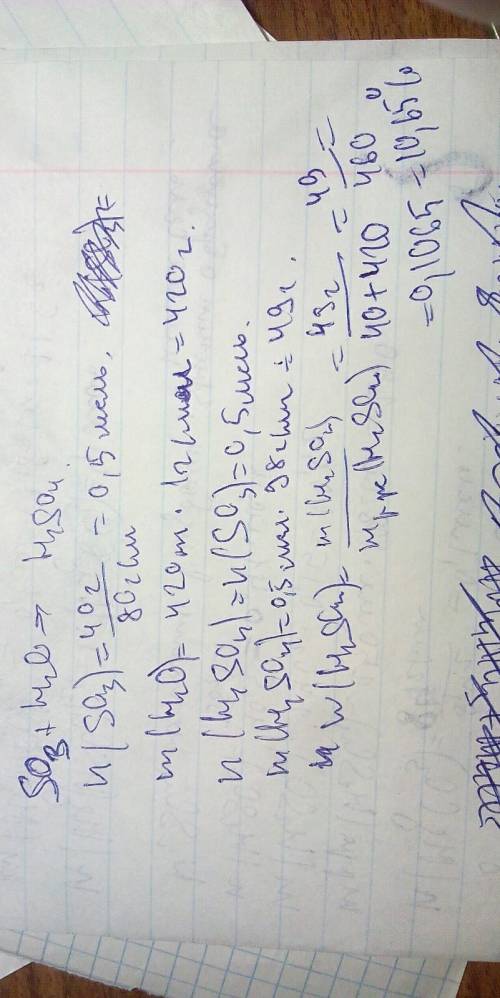 SO3 + H2O → H2SO4.
n(SO3) = 40г / 80г/м = 0,5 моль.
m(H2O) = 420 т · 1г/мл = 420г.
n(H2SO4) = n(SO3) = 0,5 моль.
m(H2SO4) = 0,5 мол · 98г/м = 49г.
w(H2SO4) = m(H2SO4) / mр-ра(H2SO4) = 49г / 40+420 = 49 / 460 =
= 0,1065 = 10,65%